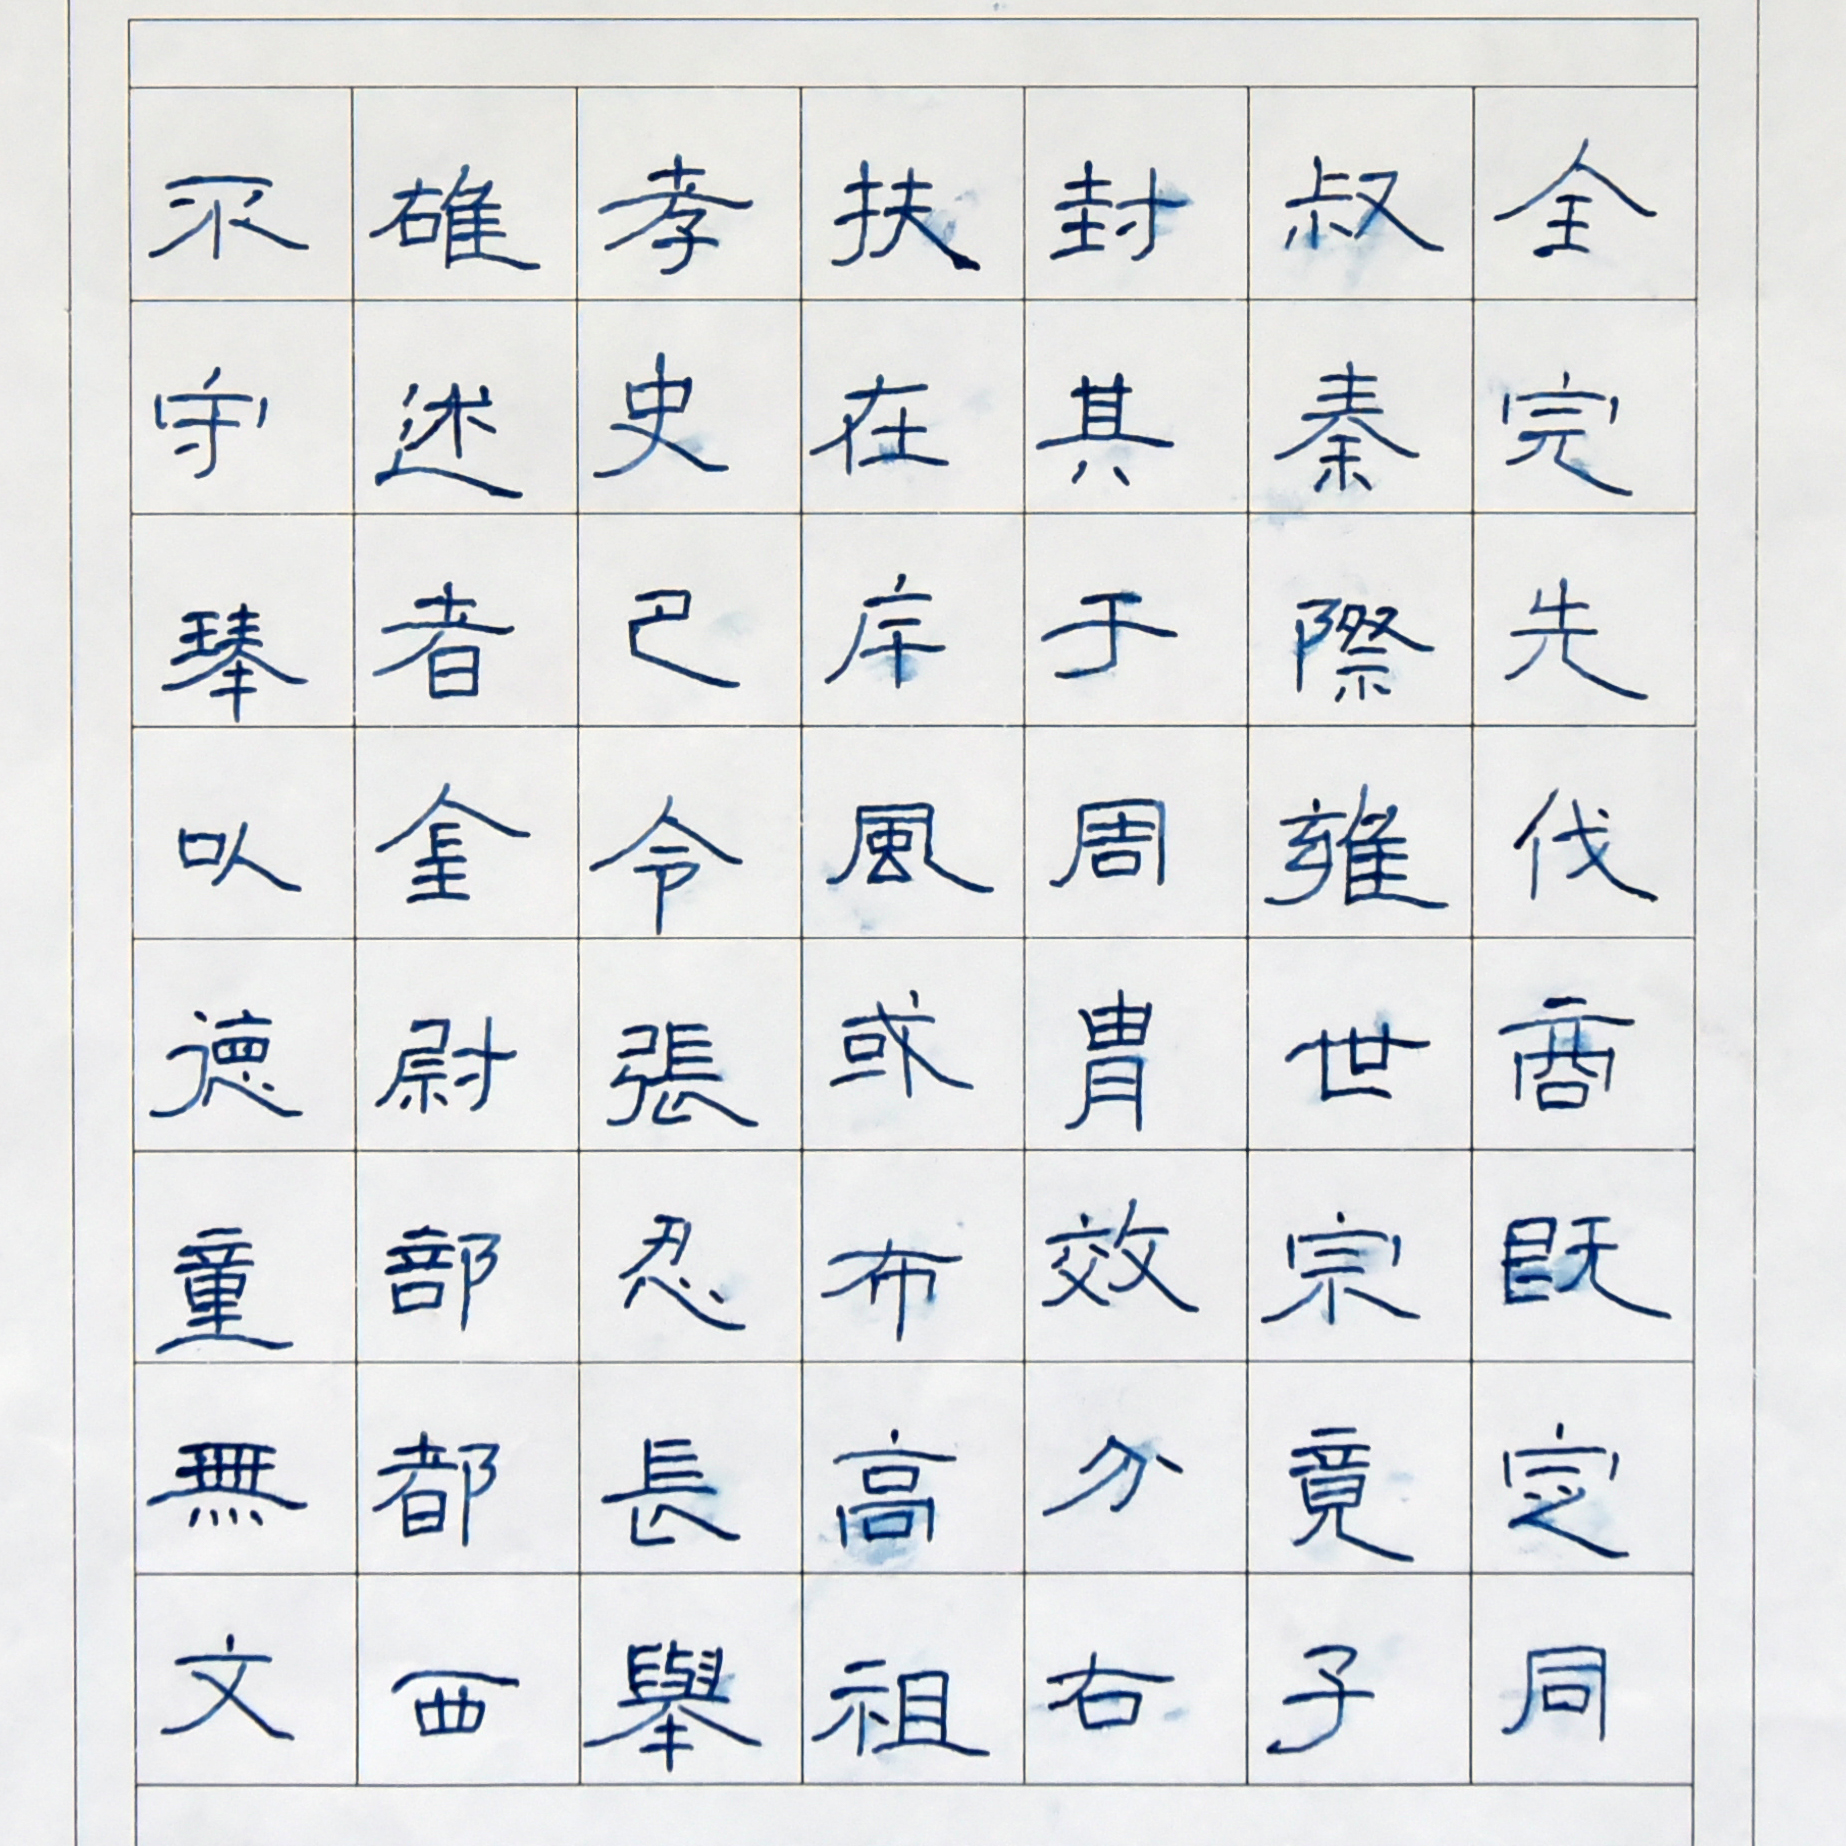 全完先伐商既定同
叔秦際雍世宗竟子
封其于周胄效分右
扶在斥風或布高祖
孝史巴令張忍長舉
雄述者金尉部都西
不守琫以德童無文